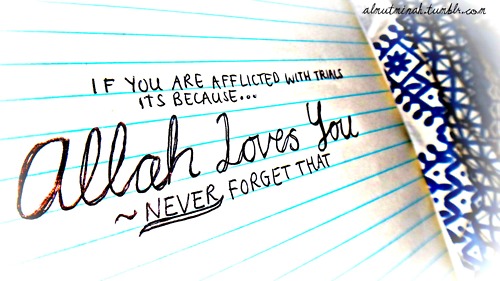 almutminah.tumblr.com
IF YOU ARE AFFLICTED WITH TRIALS
ITS BECAUSE...
Allah Loves You
~ NEVER FORGET THAT